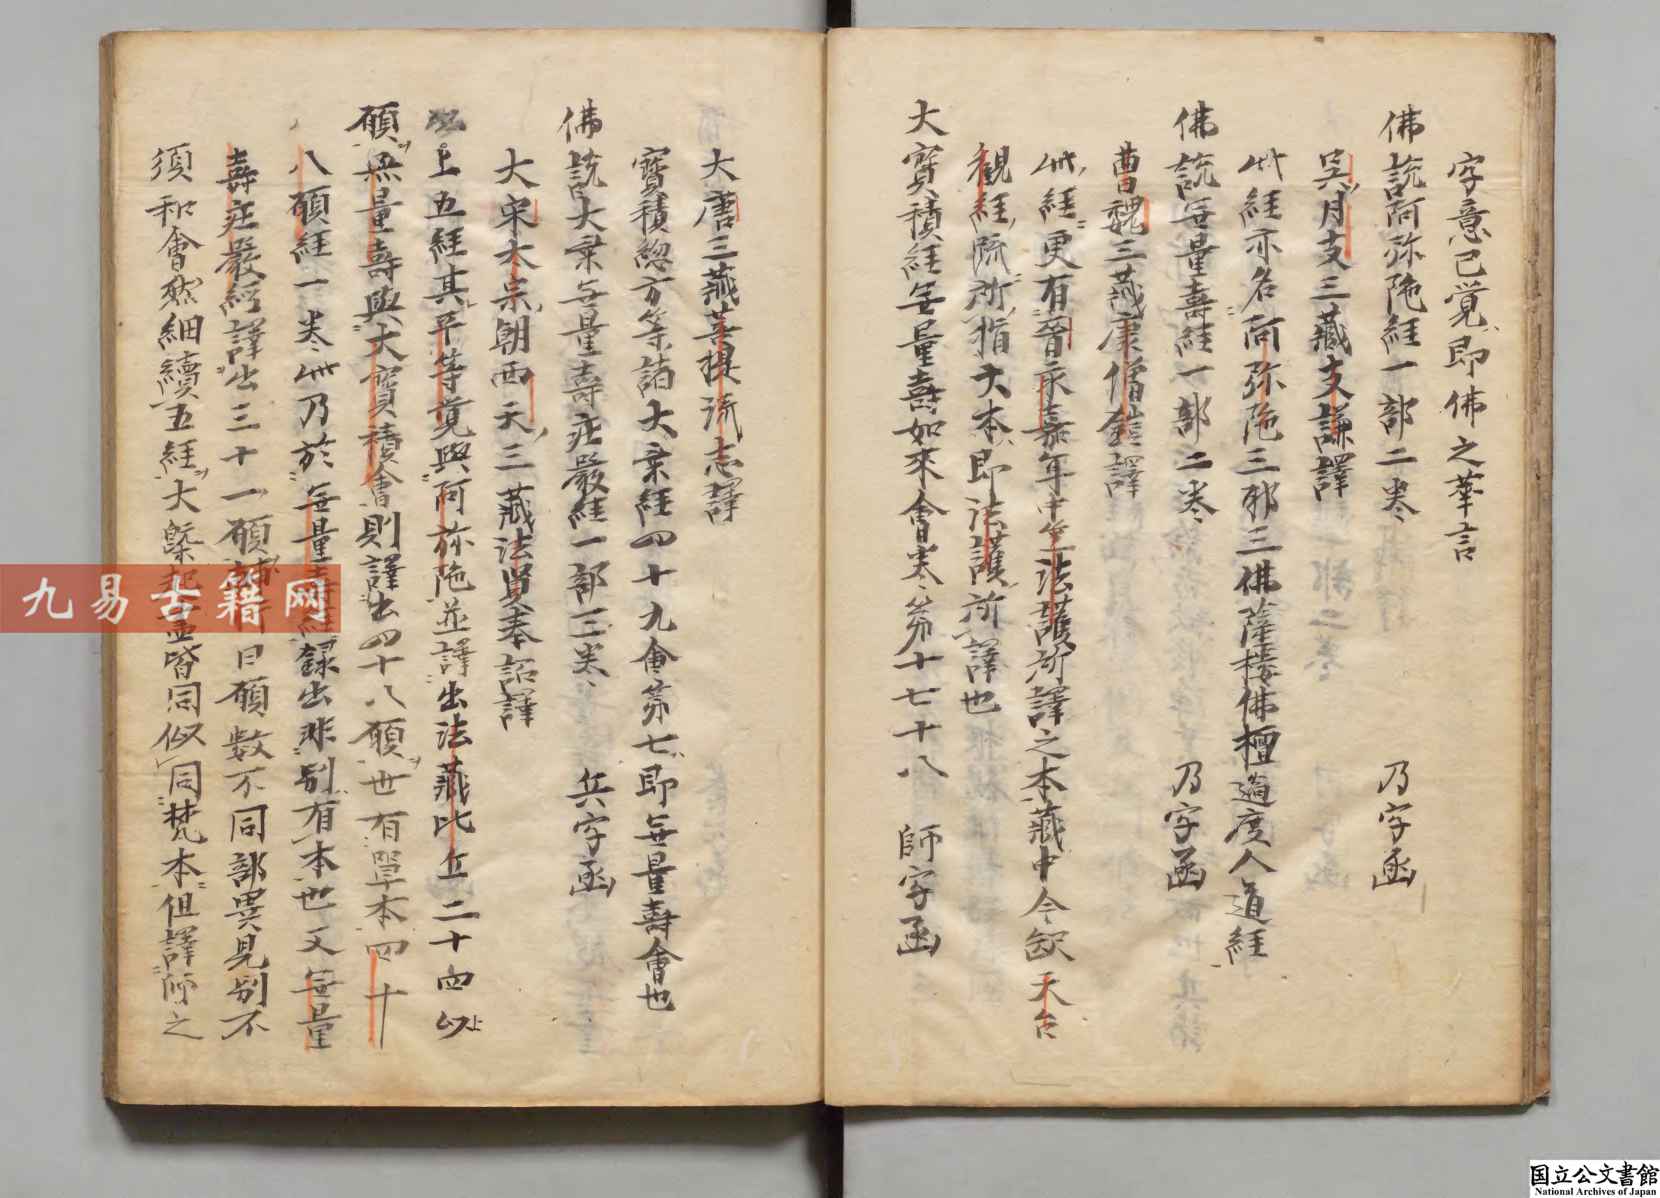 字意已覚即佛之華言
佛説阿弥陁経一部二巻 乃字函
吴月支三藏支謙譯
此経亦名阿弥陁三耶三佛薩楼佛檀過度人道経
佛説無量壽経一部二巻 乃字函
曹魏三藏康僧鎧譯
此経更有晉永嘉年中竺法護所譯之本藏中今缺天台
観経䟽所指大本即法護所譯也
大寳積経無量壽如來會巻第十七十八 師字函
大唐三藏菩提流志譯
寳積総方等諸大乗経四十九會第七即無量壽會也
佛説大乗無量壽荘嚴経一部三巻 兵字函
大宋太宗朝西天三藏法賢奉詔譯
上五経其平等覚與阿弥陁並譯出法藏比丘二十四
願無量壽與大寳積會則譯出四十八願世有單本四十
八願経一巻此乃於無量壽経録出非别有本也又無量
壽荘嚴経譯出三十一願 曰願數不同部異見别不
須和會然細續五経大槩起盡皆同似同梵本但譯師之
九易古籍网
国立公文書館
National Archives of Japan